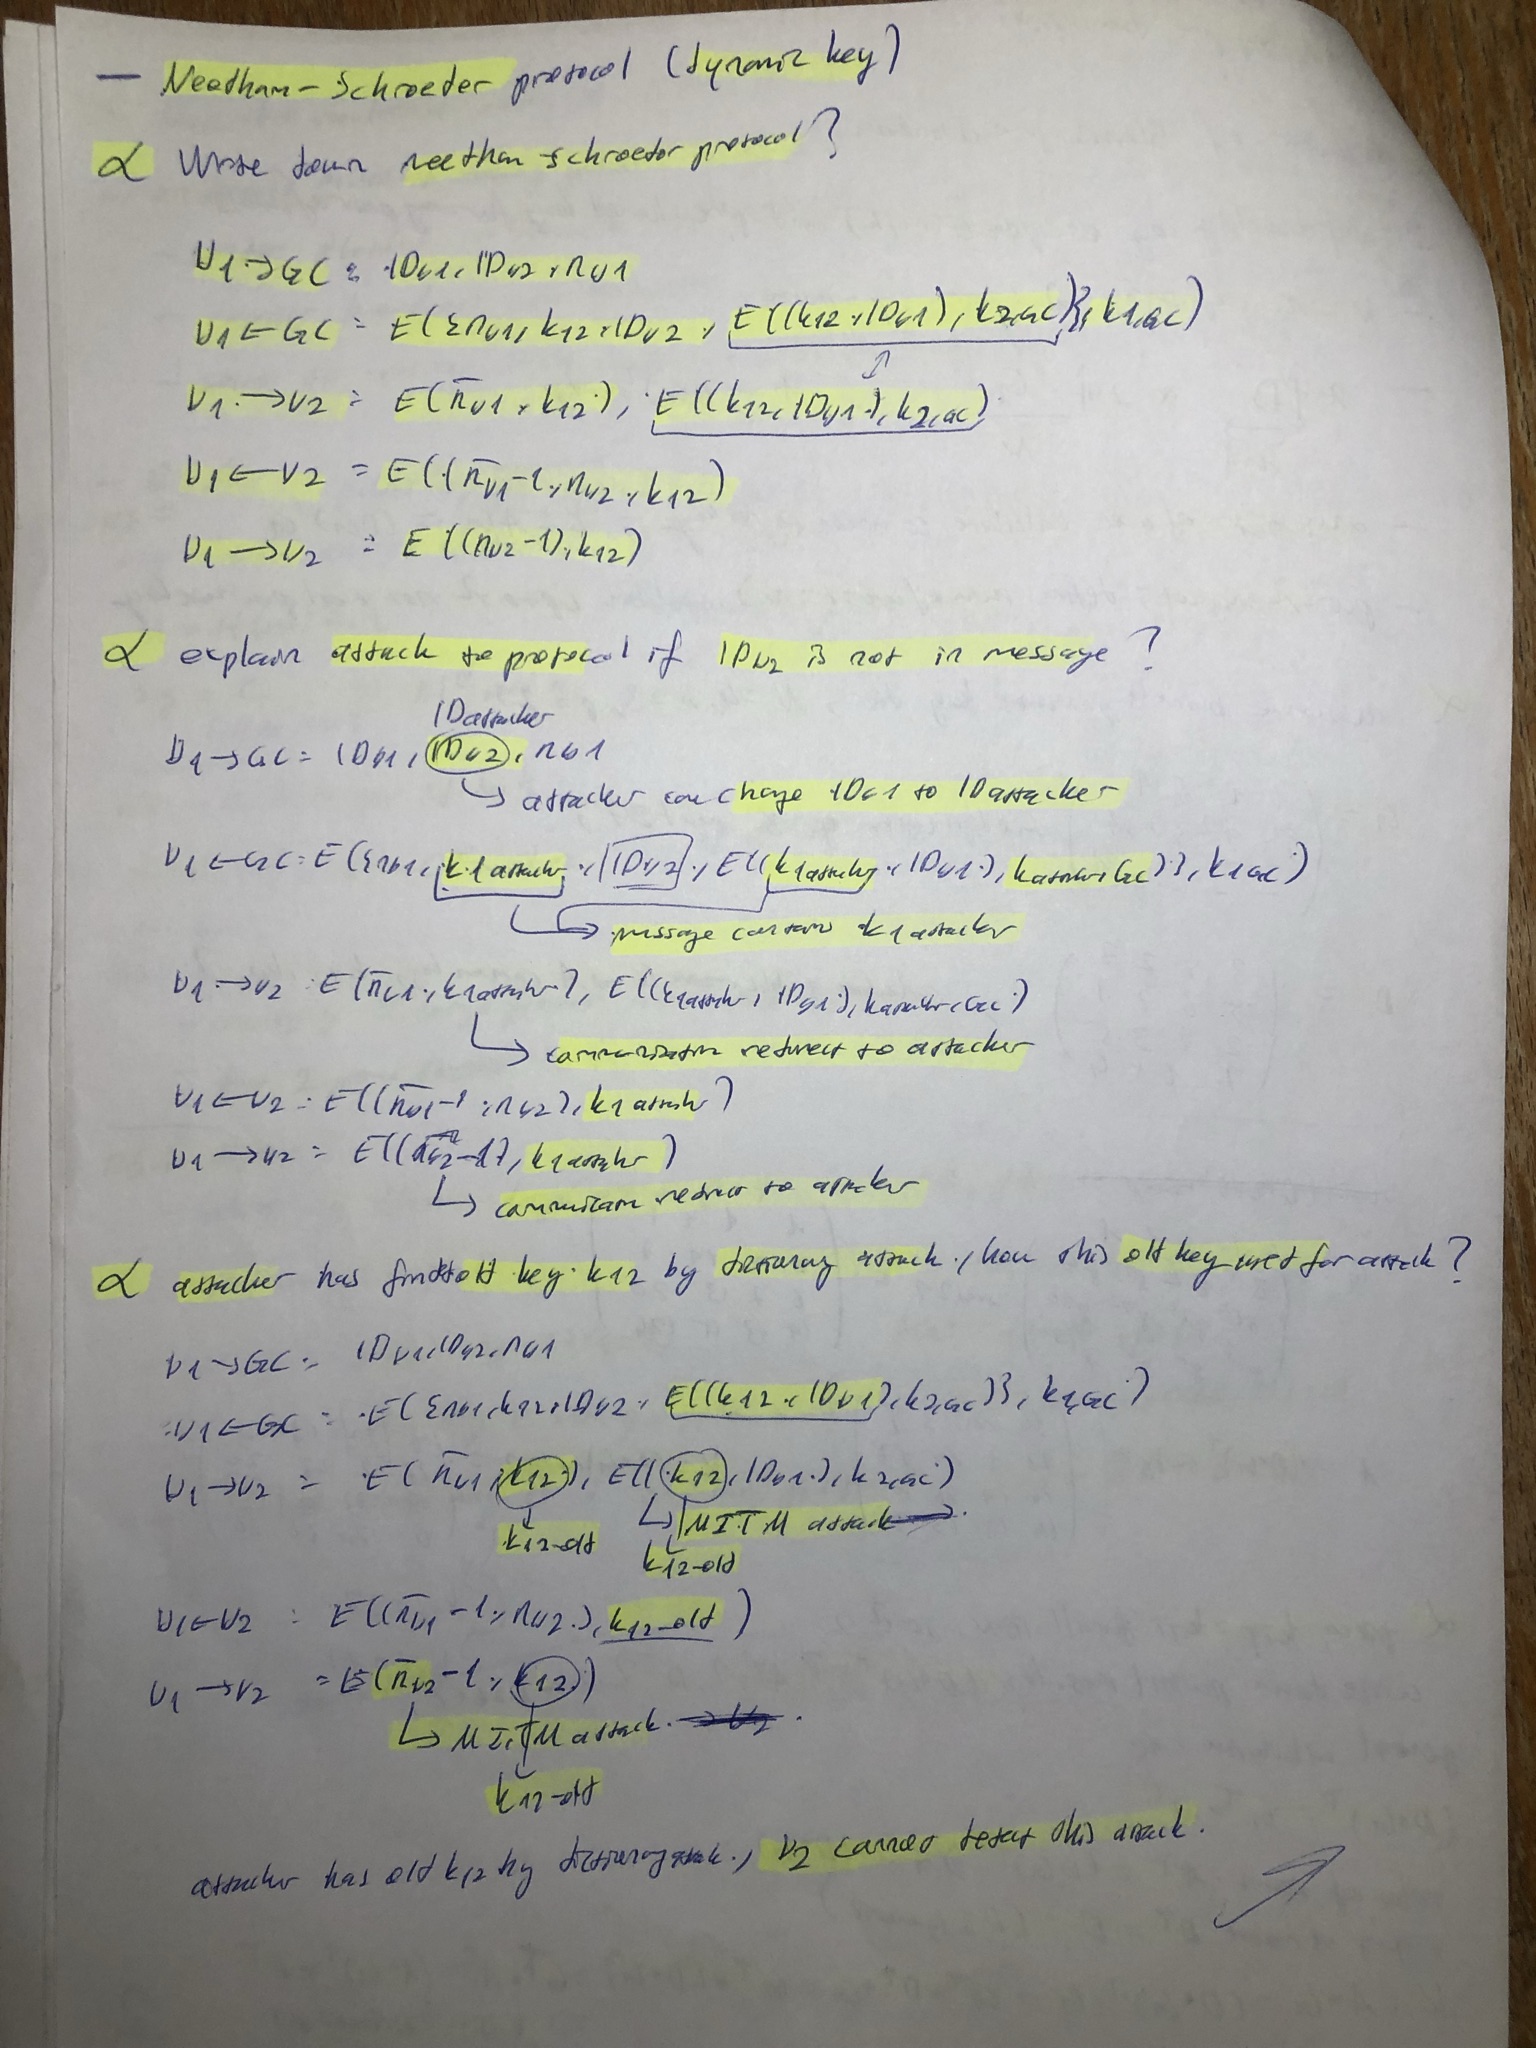 — Needham-Schroeder protocol (dynamic key)
α Write down needham-schroeder protocol?
U1→GC : IDU1, IDU2, nU1
U1←GC = E({nU1, k12, IDU2, E((k12, IDU1), k2,GC)}, k1,GC)
U1→U2 = E(n̄U1, k12), E((k12, IDU1), k2,GC)
U1←U2 = E((n̄U1-1, nU2, k12)
U1→U2 = E((nU2-1), k12)
α explain attack to protocol if IDU2 is not in message?
IDattacker
U1→GC = IDU1, IDU2, nU1
↳ attacker can change IDU1 to IDattacker
U1←GC = E({nU1, k1attacker, IDU2, E((k1attacker, IDU1), kattacker,GC)}, k1GC)
↳ message contains k1attacker
U1→U2 = E(n̄U1, k1attacker), E((k1attacker, IDU1), kattacker,GC)
↳ communication redirect to attacker
U1←U2 = E((n̄U1-1, nU2), k1attacker)
U1→U2 = E((n̄U2-1), k1attacker)
↳ communication redirect to attacker
α attacker has find old key k12 by dictionary attack, how this old key used for attack?
U1→GC = IDU1, IDU2, nU1
U1←GC = E({nU1, k12, IDU2, E((k12, IDU1), k2,GC)}, k1,GC)
U1→U2 = E(n̄U1, k12), E((k12, IDU1), k2,GC)
↳ MITM attack
k12-old k12-old
U1←U2 = E((n̄U1-1, nU2), k12-old)
U1→U2 = E(n̄U2-1, k12)
↳ MITM attack
k12-old
attacker has old k12 by dictionary attack, U2 cannot detect this attack.